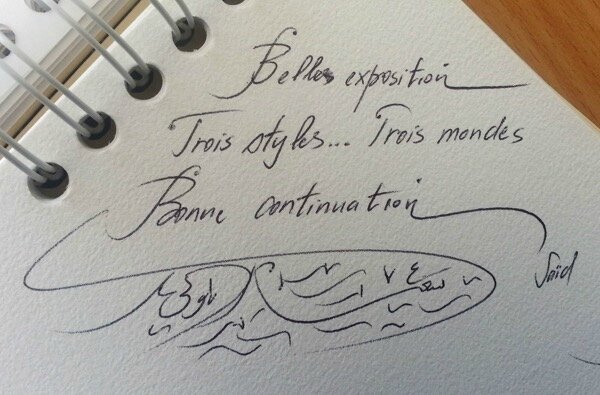 Belles exposition
Trois styles... Trois mondes
Bonne continuation
Saïd